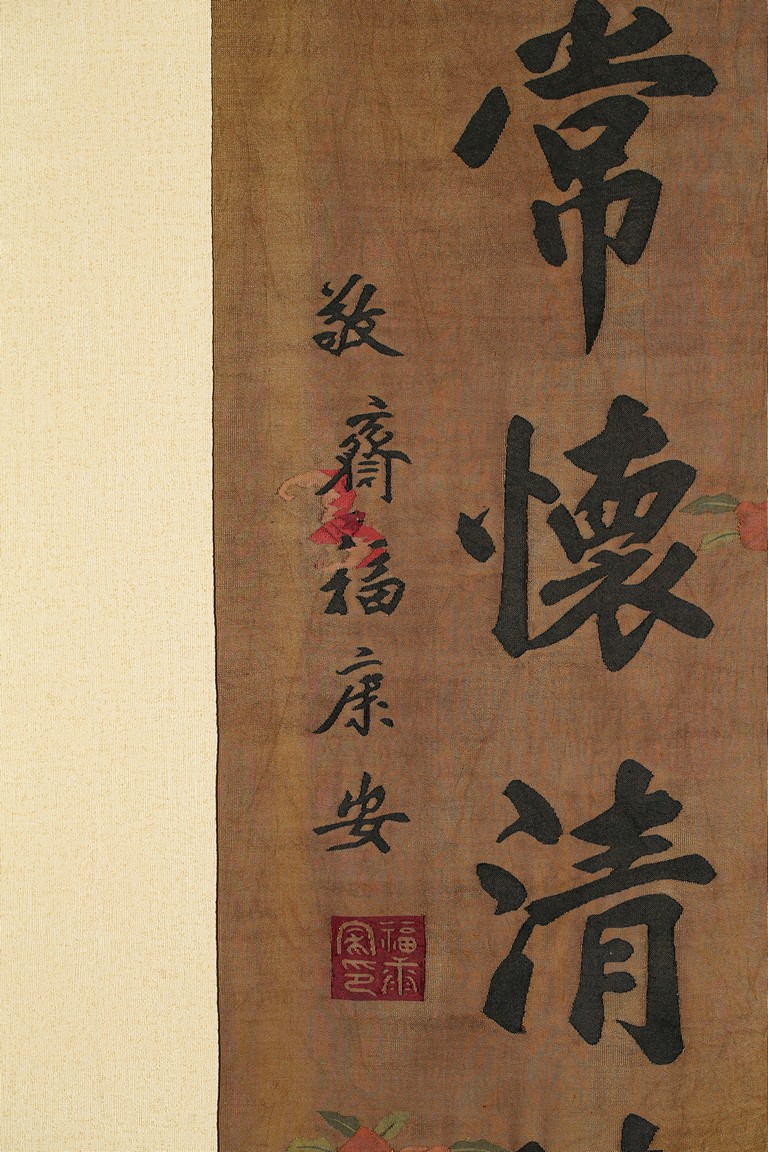 常懷清
敬齋福康安
福康安印